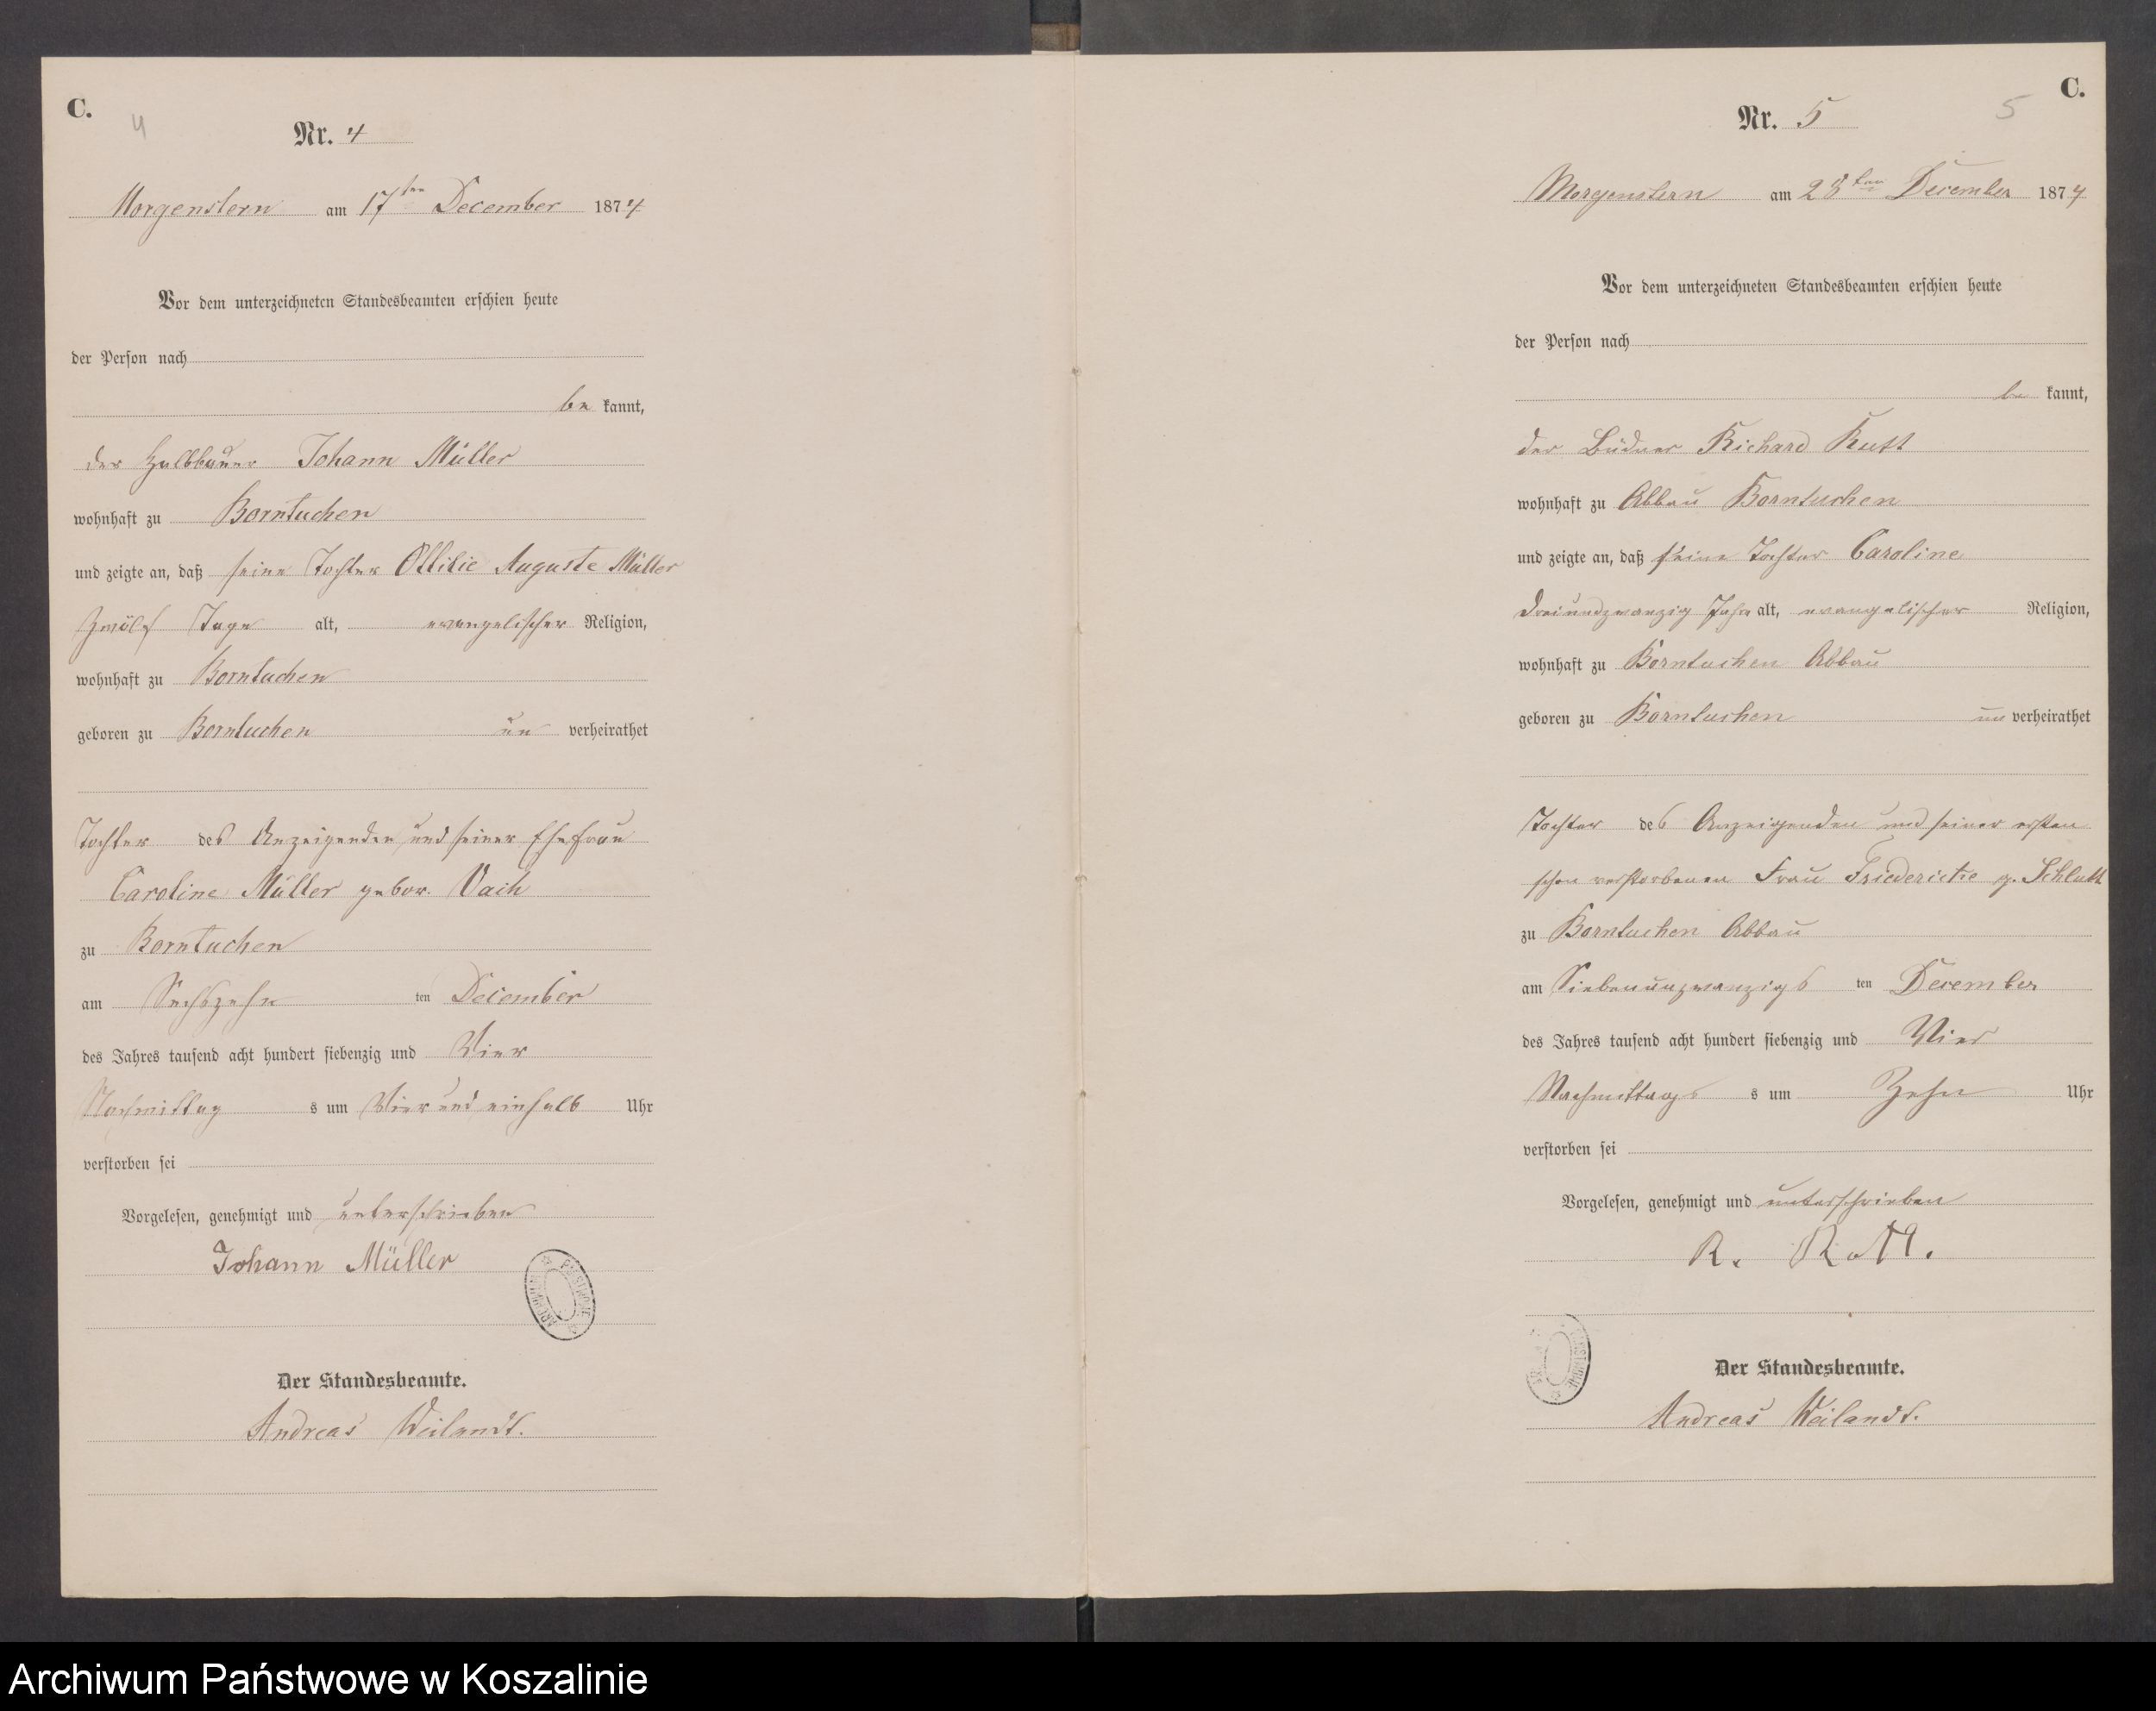 C.
4
Nr. 4
Morgenstern am 17ten December 1874
Vor dem unterzeichneten Standesbeamten erschien heute
der Person nach
be kannt,
der Halbbauer Johann Müller
wohnhaft zu Borntuchen
und zeigte an, daß seine Tochter Ottilie Auguste Müller
Zwölf Tage alt, evangelischer Religion,
wohnhaft zu Borntuchen
geboren zu Borntuchen un verheirathet
Tochter des Anzeigenden und seiner Ehefrau
Caroline Müller gebor.
zu Borntuchen
am Sechszehn ten December
des Jahres tausend acht hundert siebenzig und Vier
Nachmittag s um Vier und einhalb Uhr
verstorben sei
Vorgelesen, genehmigt und unterschrieben
Johann Müller
Der Standesbeamte.
Andreas Weilandt.
C.
5
Nr. 5
Morgenstern am 28ten December 1874
Vor dem unterzeichneten Standesbeamten erschien heute
der Person nach
be kannt,
der Büdner Richard
wohnhaft zu Abbau Borntuchen
und zeigte an, daß seine Tochter Caroline
dreiundzwanzig Jahr alt, evangelischer Religion,
wohnhaft zu Borntuchen Abbau
geboren zu Borntuchen un verheirathet
Tochter des Anzeigenden und seiner ersten
schon verstorbenen Frau Friedericke g.
zu Borntuchen Abbau
am Siebenunzwanzigs ten December
des Jahres tausend acht hundert siebenzig und Vier
Nachmittags s um Zehn Uhr
verstorben sei
Vorgelesen, genehmigt und unterschrieben
R.
Der Standesbeamte.
Andreas Weilandt.
Archiwum Państwowe w Koszalinie